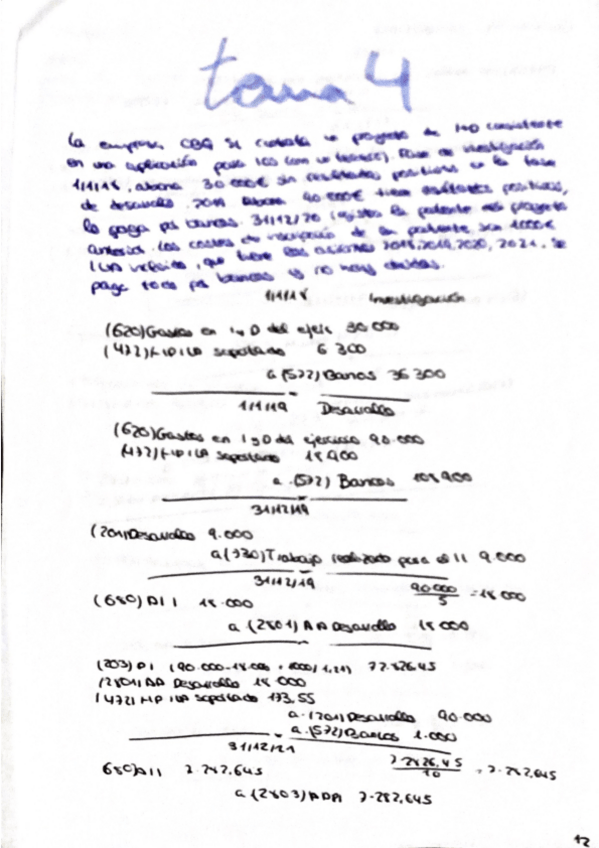 tema 4
la empresa CBA SL contrata un proyecto de I+D consistente
en una aplicación para (con un técnico). Fase de investigación
1/1/18, abona 30 000€ sin resultados positivos en la fase
de desarrollo. 2019 abona 90.000€ tiene resultados positivos,
lo paga por bancos. 31/12/20 registra la patente del proyecto
anterior. Los costes de inscripción de la patente son 1000€
IVA incluido, que tiene los asientos 2018, 2019, 2020, 2021. Se
paga todo por bancos y no hay deudas.
1/1/18 Investigación
(620) Gastos en I y D del ejerc 30 000
(472) H P IVA soportado 6 300
a (572) Bancos 36 300
1/1/19 Desarrollo
(620) Gastos en I y D del ejercicio 90.000
(472) H P IVA soportado 18 900
a (572) Bancos 108 900
31/12/19
(201) Desarrollo 9.000
a (730) Trabajo realizado para el II 9.000
31/12/19 90 000/5 = 18 000
(680) A I I 18.000
a (2801) A A Desarrollo 18 000
(203) P I (90.000-18.000 + 1000/1,21) 72.826,45
(2801) AA Desarrollo 18 000
(472) H P IVA soportado 173,55
a (201) Desarrollo 90.000
a (572) Bancos 1.000
31/12/21 72826,45/10 = 7.282,645
680) A I I 7.282,645
a (2803) A A P I 7.282,645
12